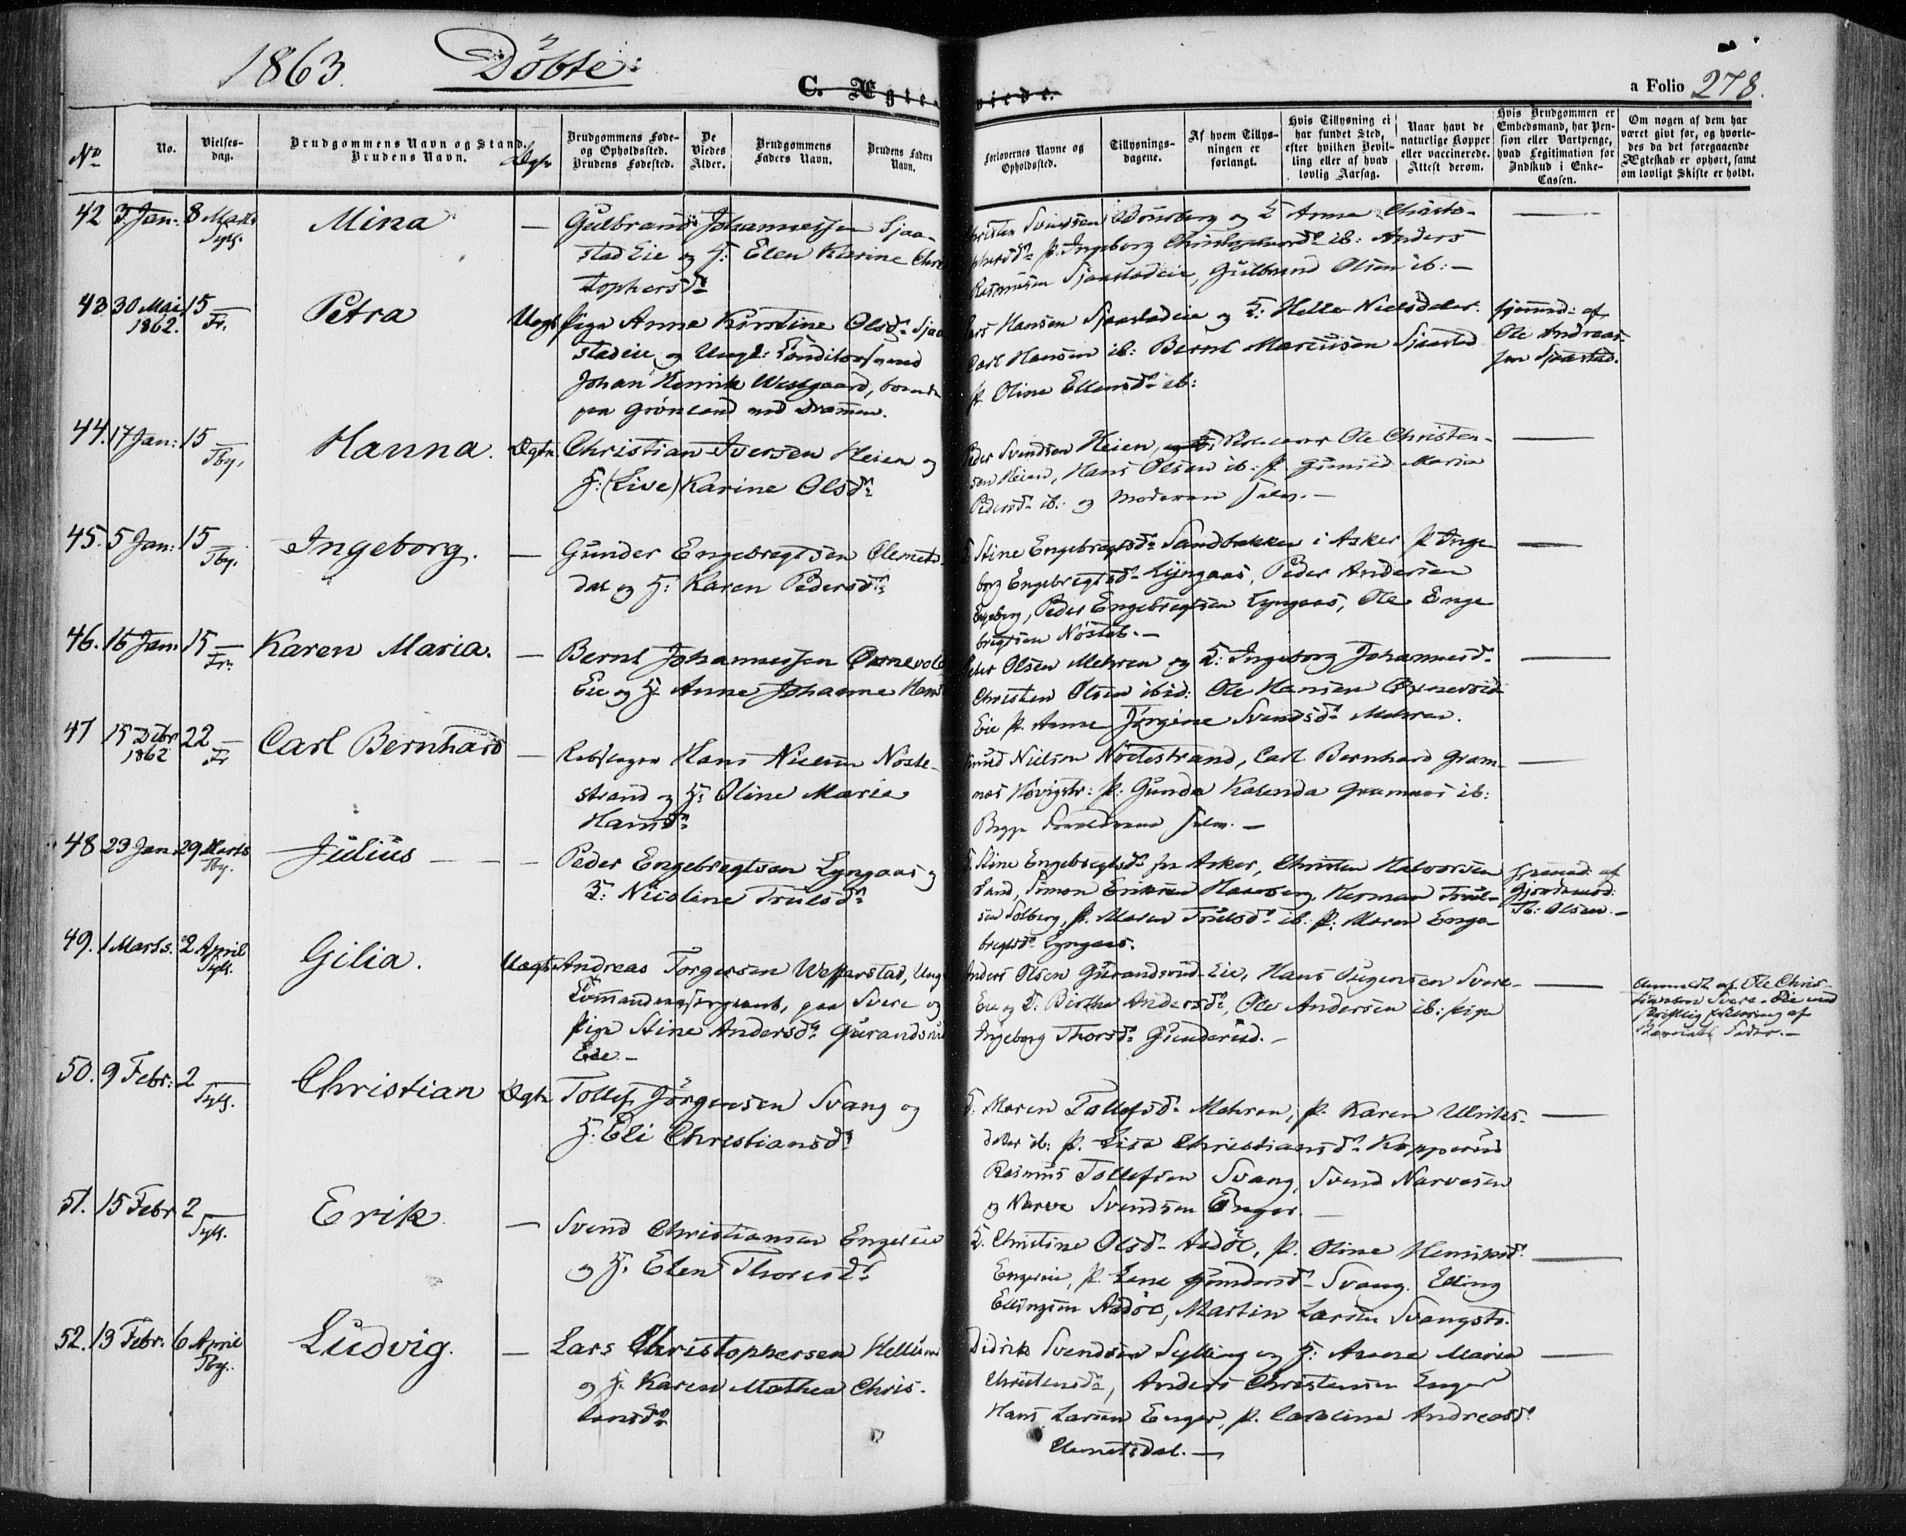 1863. Döbte:
C. Ægteviede.
a Folio 278.
No
No.
Vielses-
dag.
Brudgommens Navn og Stand.
Brudens Navn.
Ægte
Brudgommens Føde-
og Opholdssted.
Brudens Fødested.
De
Viedes
Alder.
Brudgommens
Faders Navn.
Brudens Faders
Navn.
Forlovernes Navne og
Opholdssted.
Tillysnings-
dagene.
Af hvem Tillys-
ningen er
forlangt.
Hvis Tillysning ei
har fundet Sted,
efter hvilken Bevil-
ling eller af hvad
lovlig Aarsag.
Naar havt de
naturlige Kopper
eller vaccinerede.
Attest derom.
Hvis Brudgommen er
Embedsmand, har Pen-
sion eller Vartpenge,
hvad Legitimation for
Indskud i Enke-
Cassen.
Om nogen af dem har
været gift før, og hvorle-
des da det foregaaende
Ægteskab er ophørt, samt
om lovligt Skifte er holdt.
42 3 Jan: 8 Marts Sylt. Mina —
Gulbrand Johannessen Sjaa-
stad Eie og H: Elen Karine Chris
tophersd.
Christen Svendsen og H: Anna Christo-
phersd. P. Ingeborg ib: Anders
Rasmusen Sjaastadeie, Gulbrand Olsen ib: —
43 30 Mai 1862. 15 — Fr. Petra Uegt.
Pige Anne Kirstine Olsd. Sjaa
stadeie og Ungk:
Johan Henrik Westgaard, boende
paa Grönland ved Drammen.
Lars Hansen Sjaastadeie og H: Helle Nielsdatter.
Carl Hansen ib: Bernt Marcusen Sjaastad
P. Oline Ellensd. ib:
af
Ole Andreas-
sen Sjaastad.
44. 17 Jan: 15 — Tby. Hanna. Ægte
Christian Iversen Heien og
H: (Live) Karine Olsd.
Peder Svendsen Heien, Ole Christen-
sen Heien, Hans Olsen ib: P. Maria
Pedersd. ib: og Moderen selv. —
45. 5 Jan: 15 — Tby. Ingeborg. —
Gunder Engebregtsen Clemets
dal og H: Karen Pedersd.
H Stine Engebregtsd. Sandbakken i Asker P. Inge
borg Engebregtsd. Lyngaas, Peder Andersen
Engeberg, Peder Engebregtsen Lyngaas, Ole Enge
bregtsen Nösteb. —
46. 16 Jan: 15 — Fr. Karen Maria. —
Bernt Johannessen Oxnevold
Eie og H. Anne Johanne Hans
Peder Olsen Mehren og H: Ingeborg Johannesd.
Christen Olsen ibid: Ole Hansen
Eie P. Anne Jörgine Svendsd. Mehren.
47 15 Decbr 1862 22 — Fr Carl Bernhard —
Rebslager Hans Nielsen Nöste-
strand og H: Oline Maria
Hansd.
Nielsen Nöstestrand, Carl Bernhard Gram-
naes Hövigstr: P. Gunda Gramnaes ib:
Begge Forældrene selv. —
48 23 Jan. 29 Marts Tby. Julius — — —
Peder Engebregtsen Lyngaas og
H: Nicoline Trulsd.
H. Stine Engebregtsd. fra Asker, Christen Halvorsen
Sand, Simon Eriksen Haavberg, Herman Truls-
sen Solberg, P. Maren Trulsd. ib: P. Maren Enge-
bregtsd. Lyngaas.
af
Gjordemod:
Th: Olsen. —
49. 1 Marts. 2 April Sylt. Gilia. Uegt.
Andreas Torgersen Wefferstad, Ung
Commandeersergeant, paa Svere og
Pige Stine Andersd. Gurandsrud
Eie. —
Anders Olsen Gurandsrud Eie, Hans Svere-
Eie og H. Birthe Andersd. Ole Andersen ib: Pige
Ingeborg Thorsd. Gunderud. —
Anmeldt af Ole Chris-
tiansen Svere-Eie med
skriftlig Erklæring af
Barnets Fader. —
50. 9 Febr: 2 — Sylt. Christian Ægte
Tollef Jörgensen Svang og
H: Eli Christiansd.
H. Maren Tollefsd. Mehren, P. Karen Ulriks-
datter ib: P. Lise Christiansd. Kopperud
Rasmus Tollefsen Svang, Svend Narvesen
og Narve Svendsen Enger. —
51. 15 Febr 2 — Sylt. Erik. —
Svend Christiansen Engereie
og H. Elen Thoresd.
H. Christine Olsd. Aadöl, P. Oline Henriksd.
Engereie, P. Lene Gundersd. Svang. Elling
Ellingsen Aadöl, Martin Larsen Svangstr.
52. 13 Febr. 6 April Tby. Ludvig. —
Lars Christophersen Hellum
og H. Karen Mathea Chris-
tansd.
Didrik Svendsen Sylling og H: Anne Maria
Christensd., Anders Christensen Enger
Hans Larsen Enger, P. Caroline Andreasd.
Clemetsdal. —